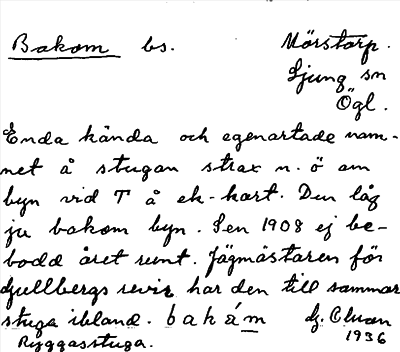 Bakom bs. Mörstorp.
Ljung sn
Ögl.
Enda kända och egenartade nam-
net å stugan strax n. ö om
byn vid T å ek-kart. Den låg
ju bakom byn. Sen 1908 ej be-
bodd året runt. Jägmästaren för
Gullbergs revir har den till sommar
stuga ibland. bakám
Ryggåsstuga. 1936